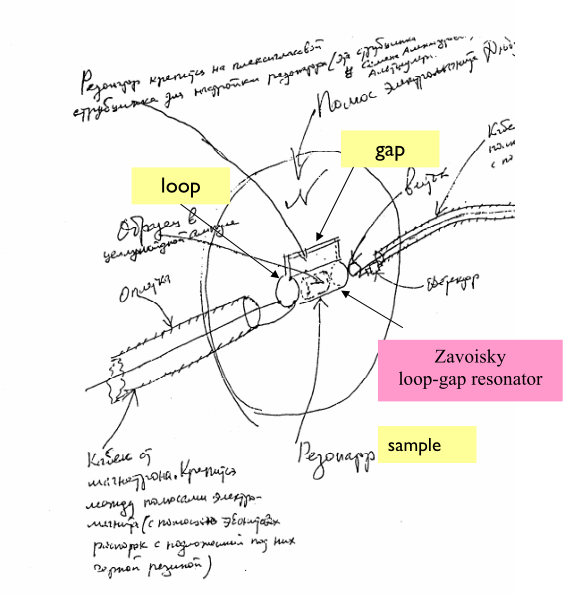 Резонатор крепится на плексигласовой
струбцинке для настройки резонатора (эта струбцинка
у Семена Александровича
Альтшулера.
Полюс электромагнита
gap
Кабель
loop
Виток
Образец в
целлулоидной ампуле
Оплетка
Детектор
Zavoisky
loop-gap resonator
sample
Резонатор
Кабель от
магнетрона. Крепится
между полюсами электро-
магнита (с помощью эбонитовых
распорок с подложенной под них
черной резиной)